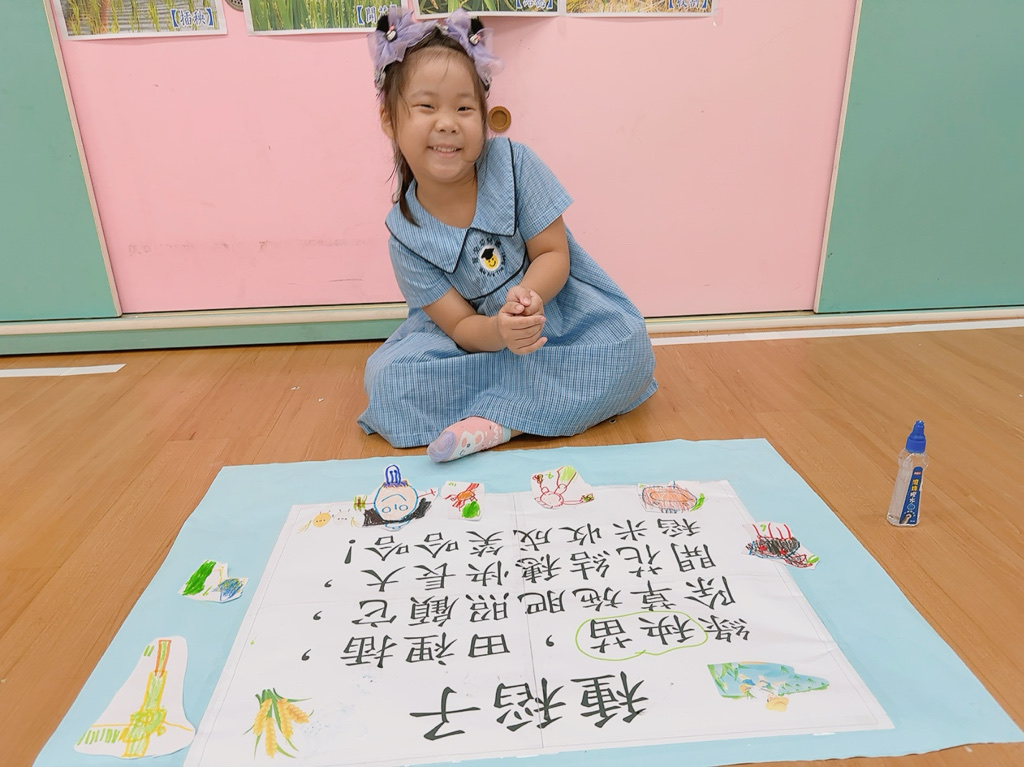 【插秧】
種稻子
綠秧苗，田裡插，
除草施肥照顧它，
開花結穗快長大，
稻米收成笑哈哈！